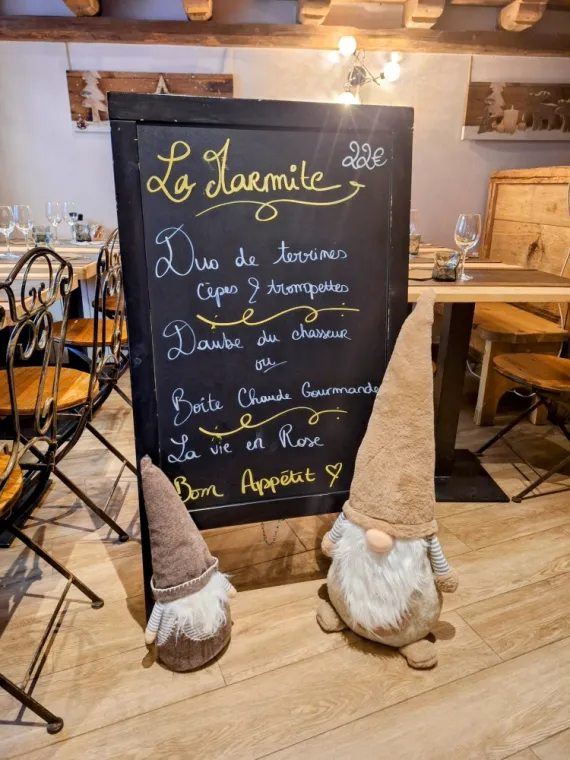 La Marmite 22€
Duo de terrines
Cèpes & trompettes
Daube du chasseur
ou
Boite Chaude Gourmande
La vie en Rose
Bon Appétit